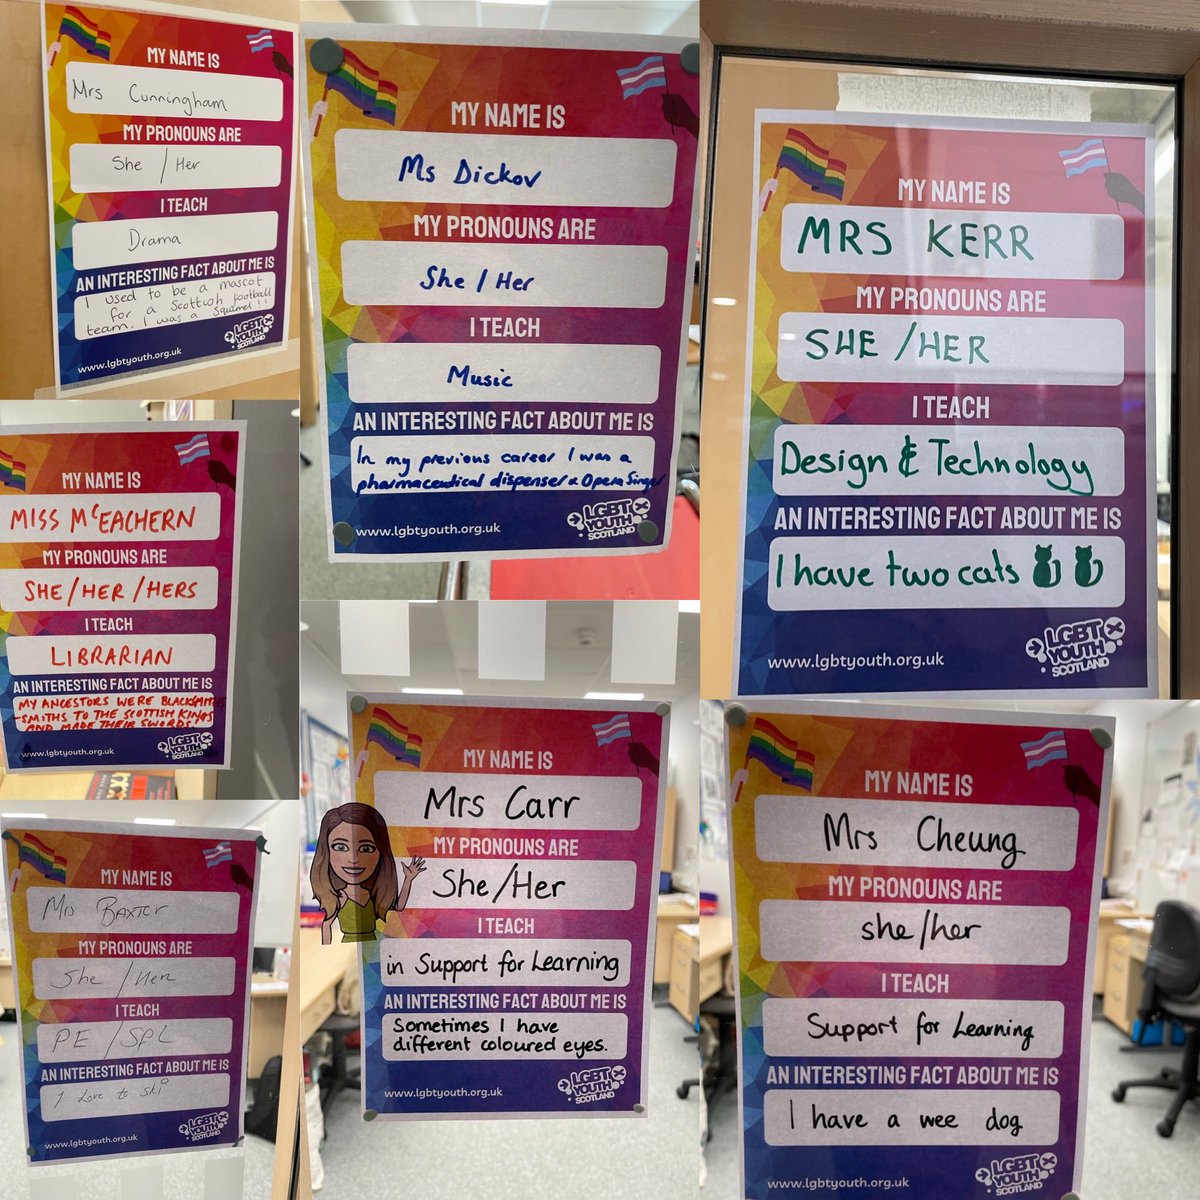 MY NAME IS
Mrs Cunningham
MY PRONOUNS ARE
She / Her
I TEACH
Drama
AN INTERESTING FACT ABOUT ME IS
I used to be a mascot
for a Scottish football
team. I was a Squirrel!!
www.lgbtyouth.org.uk
LGBT
YOUTH
SCOTLAND
MY NAME IS
Ms Dickov
MY PRONOUNS ARE
She / Her
I TEACH
Music
AN INTERESTING FACT ABOUT ME IS
In my previous career I was a
pharmaceutical dispenser & Opera Singer
www.lgbtyouth.org.uk
LGBT
YOUTH
SCOTLAND
MY NAME IS
MRS KERR
MY PRONOUNS ARE
SHE /HER
I TEACH
Design & Technology
AN INTERESTING FACT ABOUT ME IS
I have two cats
www.lgbtyouth.org.uk
LGBT
YOUTH
SCOTLAND
MY NAME IS
MISS McEACHERN
MY PRONOUNS ARE
SHE/HER/HERS
I TEACH
LIBRARIAN
AN INTERESTING FACT ABOUT ME IS
MY ANCESTORS WERE BLACKSMITHS
-SMITHS TO THE SCOTTISH KINGS
AND MADE THEIR SWORDS!
www.lgbtyouth.org.uk
LGBT
YOUTH
SCOTLAND
MY NAME IS
Mrs BAXTER
MY PRONOUNS ARE
She / Her
I TEACH
PE / SPL
AN INTERESTING FACT ABOUT ME IS
I Love to ski
www.lgbtyouth.org.uk
LGBT
YOUTH
SCOTLAND
MY NAME IS
Mrs Carr
MY PRONOUNS ARE
She/Her
I TEACH
in Support for Learning
AN INTERESTING FACT ABOUT ME IS
Sometimes I have
different coloured eyes.
www.lgbtyouth.org.uk
LGBT
YOUTH
SCOTLAND
MY NAME IS
Mrs Cheung
MY PRONOUNS ARE
she/her
I TEACH
Support for Learning
AN INTERESTING FACT ABOUT ME IS
I have a wee dog
www.lgbtyouth.org.uk
LGBT
YOUTH
SCOTLAND